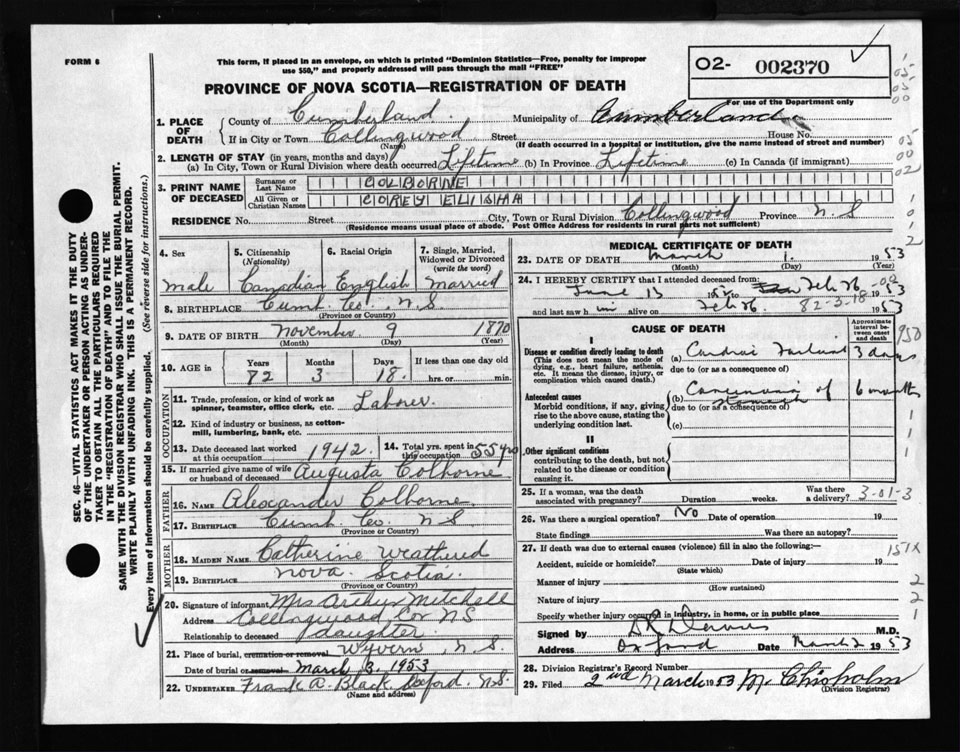 FORM 6
This form, if placed in an envelope, on which is printed "Dominion Statistics—Free, penalty for improper
use $50," and properly addressed will pass through the mail "FREE"
02- 002370
PROVINCE OF NOVA SCOTIA—REGISTRATION OF DEATH
For use of the Department only
1. PLACE OF DEATH
County of Cumberland Municipality of Cumberland
If in City or Town Collingwood Street House No.
(Name) (If death occurred in a hospital or institution, give the name instead of street and number)
2. LENGTH OF STAY (in years, months and days)
(a) In City, Town or Rural Division where death occurred Lifetime (b) In Province Lifetime (c) In Canada (if immigrant)
3. PRINT NAME OF DECEASED
Surname or Last Name COLBORNE
All Given or Christian Names COREY ELISHA
RESIDENCE No. Street City, Town or Rural Division Collingwood Province N S
(Residence means usual place of abode. Post Office Address for residents in rural parts not sufficient)
4. Sex 5. Citizenship (Nationality) 6. Racial Origin 7. Single, Married, Widowed or Divorced (write the word)
male Canadian English Married
8. BIRTHPLACE Cumb. Co. N. S
(Province or Country)
9. DATE OF BIRTH November 9 1870
(Month) (Day) (Year)
10. AGE in Years Months Days If less than one day old
82 3 18 hrs. or min.
OCCUPATION
11. Trade, profession, or kind of work as spinner, teamster, office clerk, etc. Laborer.
12. Kind of industry or business, as cotton-mill, lumbering, bank, etc.
13. Date deceased last worked at this occupation 1942 14. Total yrs. spent in this occupation 55 yrs
15. If married give name of wife or husband of deceased Augusta Colborne
FATHER
16. NAME Alexander Colborne
17. BIRTHPLACE Cumb. Co. N S
(Province or Country)
MOTHER
18. MAIDEN NAME Catherine
19. BIRTHPLACE Nova Scotia
(Province or Country)
20. Signature of informant Mrs Arthur Mitchell
Address Collingwood Cor NS
Relationship to deceased daughter
21. Place of burial, cremation or removal Wyvern, N. S.
Date of burial or removal March 3, 1953
22. UNDERTAKER Frank A. Black, Oxford. N.S.
(Name and address)
MEDICAL CERTIFICATE OF DEATH
23. DATE OF DEATH March 1. 1953
(Month) (Day) (Year)
24. I HEREBY CERTIFY that I attended deceased from:
June 13 Feb 26 1953
and last saw h im alive on Feb 26. 82-3-18 1953
CAUSE OF DEATH
Approximate interval between onset and death
I
Disease or condition directly leading to death
(This does not mean the mode of dying, e.g., heart failure, asthenia, etc. It means the disease, injury, or complication which caused death.)
(a) Cardiac Failure 3 days
due to (or as a consequence of)
Antecedent causes
Morbid conditions, if any, giving rise to the above cause, stating the underlying condition last.
(b) Carcinoma of stomach 6 months
due to (or as a consequence of)
(c)
II
Other significant conditions
contributing to the death, but not related to the disease or condition causing it.
25. If a woman, was the death associated with pregnancy? Duration weeks. Was there a delivery? 3-01-3
26. Was there a surgical operation? No Date of operation 19
State findings Was there an autopsy?
27. If death was due to external causes (violence) fill in also the following:—
151X
Accident, suicide or homicide? Date of injury 19
(State which)
Manner of injury
(How sustained)
Nature of injury
Specify whether injury occurred in industry, in home, or in public place
Signed by M.D.
Address Oxford Date March 2 1953
28. Division Registrar's Record Number
29. Filed 2nd March 1953 M Chisholm
(Division Registrar)
SEC. 46—VITAL STATISTICS ACT MAKES IT THE DUTY
OF THE UNDERTAKER OR PERSON ACTING AS UNDER-
TAKER TO OBTAIN ALL THE PARTICULARS REQUIRED
IN THE "REGISTRATION OF DEATH" AND TO FILE THE
SAME WITH THE DIVISION REGISTRAR WHO SHALL ISSUE THE BURIAL PERMIT.
WRITE PLAINLY WITH UNFADING INK. THIS IS A PERMANENT RECORD.
Every item of information should be carefully supplied. (See reverse side for instructions.)